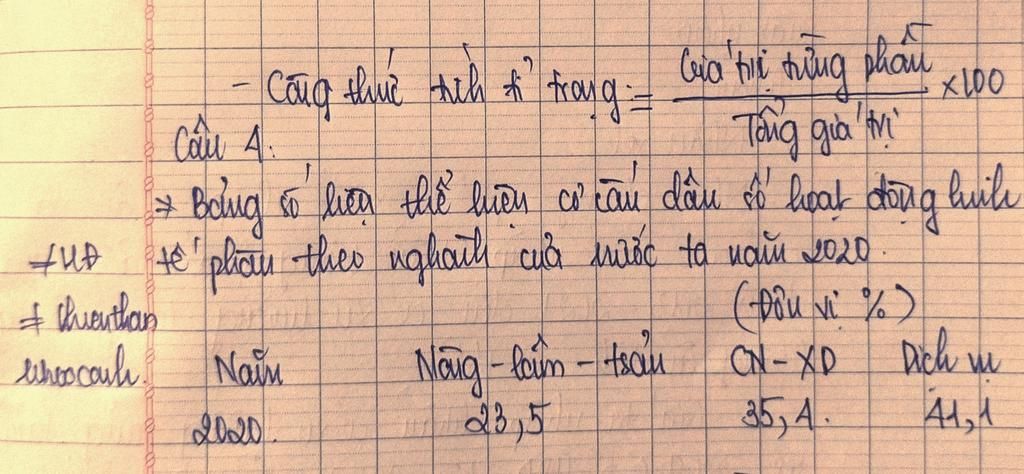 - Công thức tính tỉ trọng = Giá trị từng phần / Tổng giá trị ×100
Câu 4.
→ Bảng số liệu thể hiện cơ cấu dân số hoạt động kinh
tế phân theo nghành của nước ta năm 2020.
(Đơn vị %)
Năm Nông - lâm - tsản CN - XD Dịch vụ
2020. 23,5 35,4. 41,1